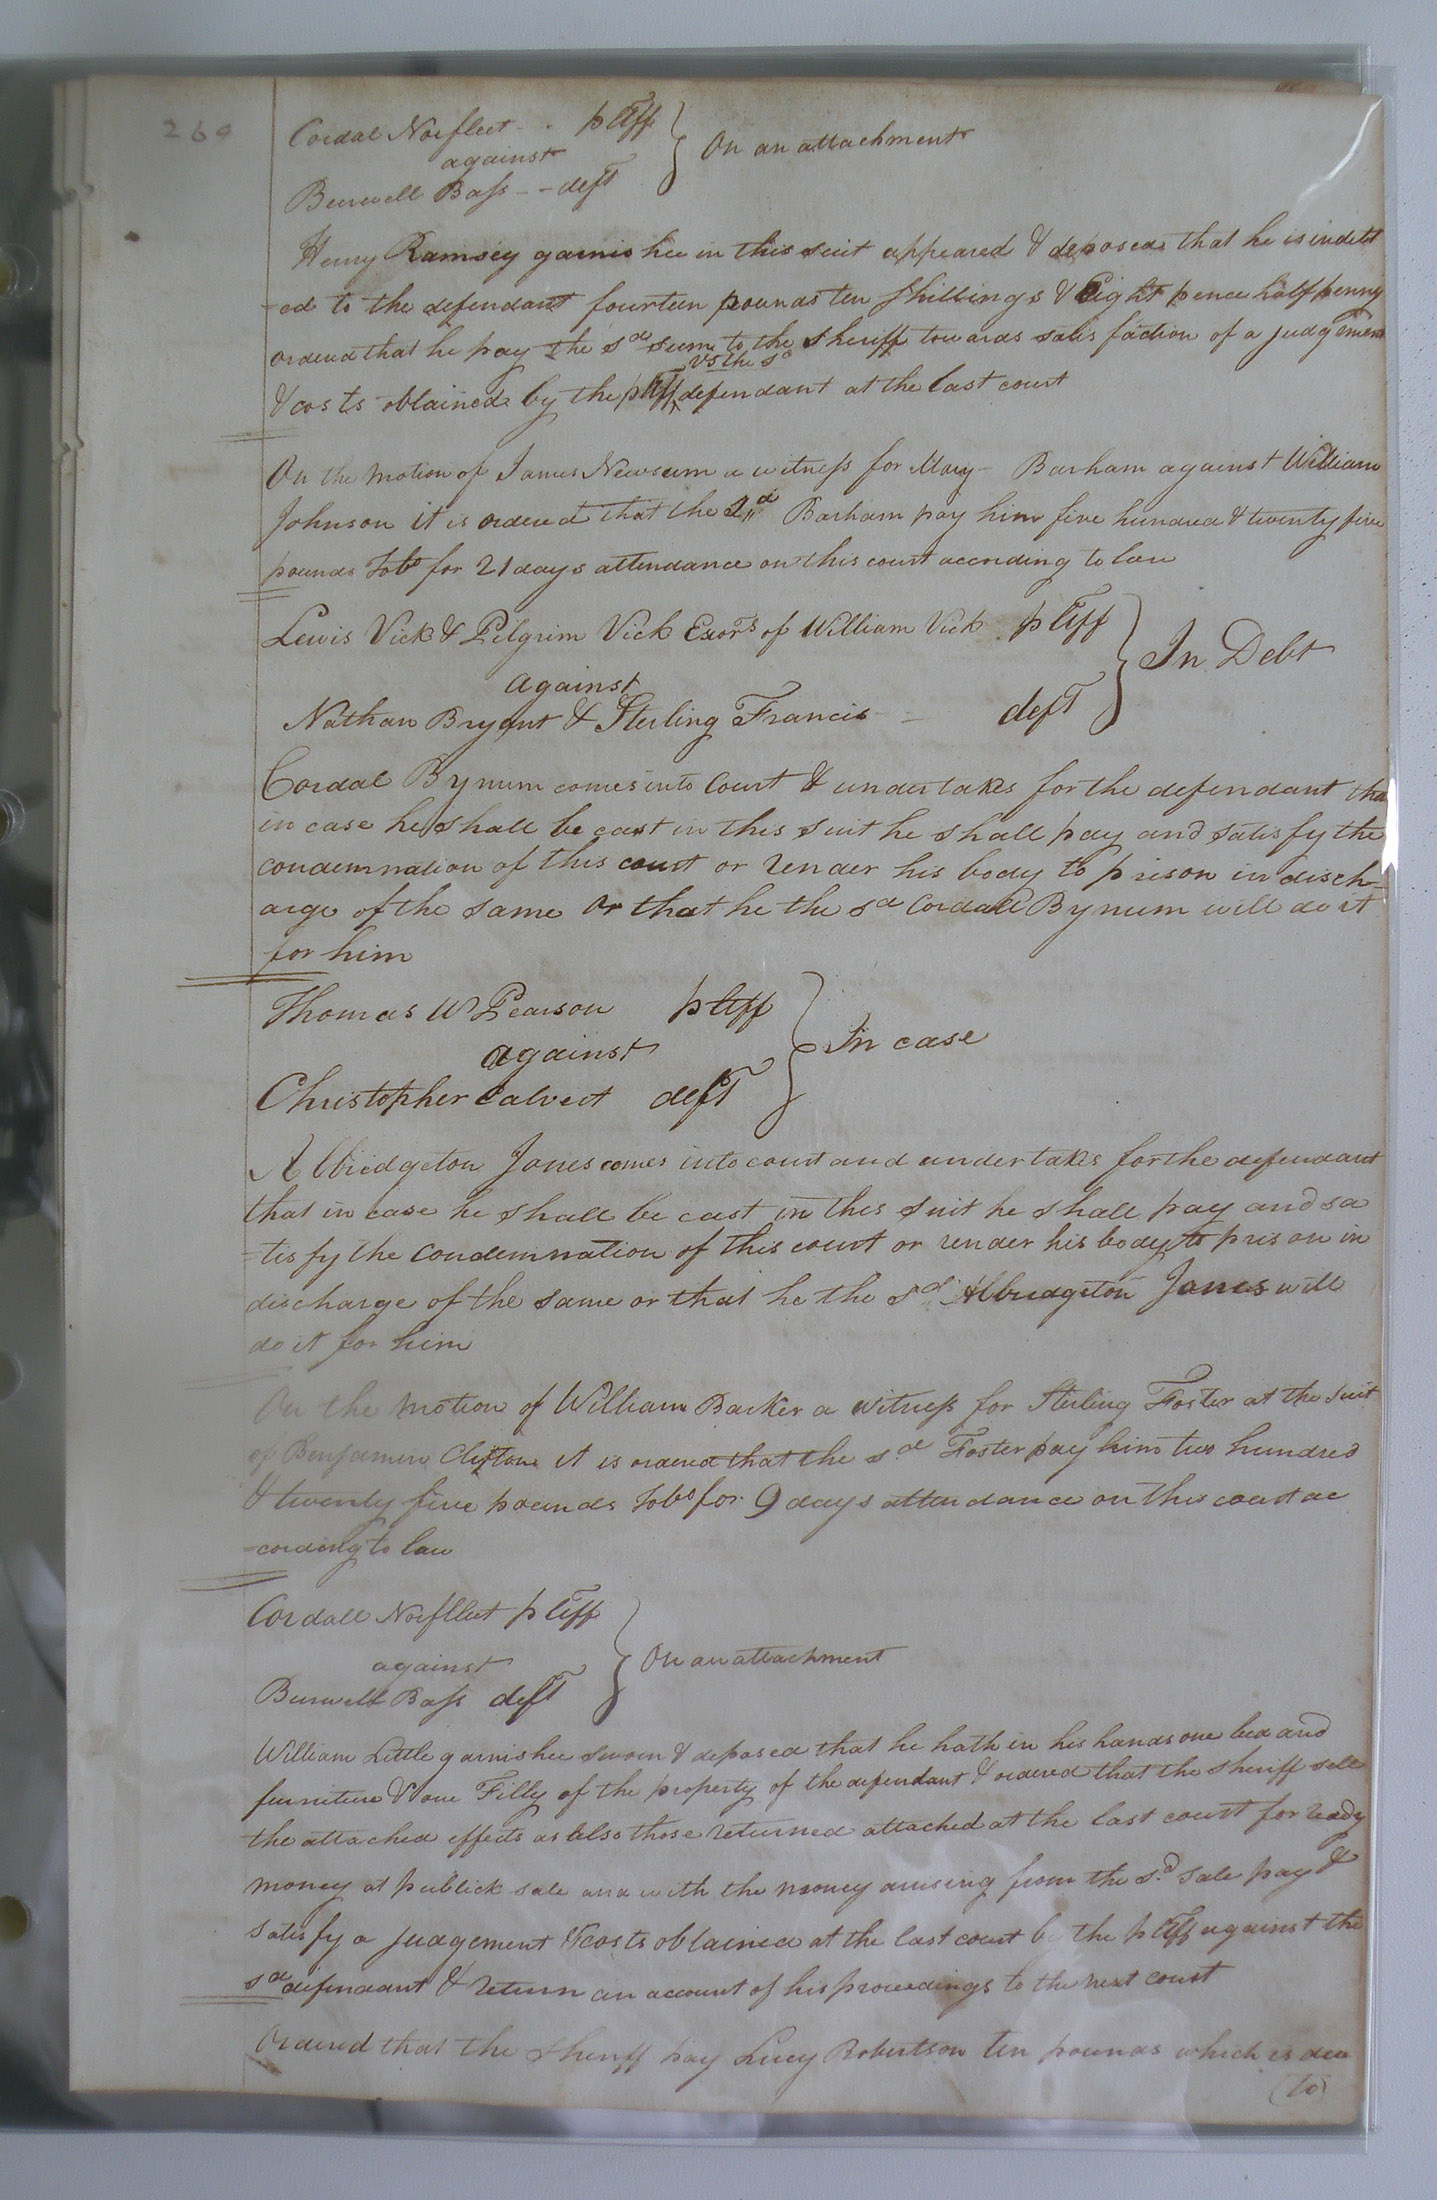 260
Cordal Norfleet - . pltff } On an attachment
against
Burwell Bass - - deft
Henry Ramsey garnishee in this suit appeared & deposed that he is indebt
-ed to the defendant fourteen pounds ten Shillings & Eight pence half penny
ordered that he pay the sd sum to the Sheriff towards satisfaction of a judgement
vs the sd
& costs obtained by the pltff defendant at the last court
On the motion of James Newsum a witness for Mary Barham against William
Johnson it is ordered that the sd Barham pay him five hundred & twenty five
pounds Tobo for 21 days attendance on this court according to law
Lewis Vick & Pilgrim Vick Exors of William Vick pltff } In Debt
against
Nathan Bryant & Sterling Francis - - deft
Cordal Bynum comes into Court & undertakes for the defendant that
in case he shall be cast in this suit he shall pay and satisfy the
condemnation of this court or render his body to prison in disch-
arge of the same or that he the sd Cordall Bynum will do it
for him
Thomas W Pearson pltff } In case
against
Christopher Calvert deft
Albridgeton Jones comes into court and undertakes for the defendant
that in case he shall be cast in this suit he shall pay and sa
-tisfy the condemnation of this court or render his body to prison in
discharge of the same or that he the sd Albridgeton Jones will
do it for him
On the motion of William Barker a witness for Sterling Foster at the suit
of Benjamin Clifton it is ordered that the sd Foster pay him two hundred
& twenty five pounds Tobo for 9 days attendance on this court ac
-cording to law
Cordall Norfleet pltff } On an attachment
against
Burwell Bass deft
William Little garnishee sworn & deposed that he hath in his hands one bed and
furniture & one Filly of the property of the defendant & ordered that the sheriff sell
the attached effects as also those returned attached at the last court for ready
money at publick sale and with the money arising from the sd sale pay &
satisfy a judgement & costs obtained at the last court by the pltff against the
sd defendant & return an account of his proceedings to the next court
Ordered that the Sheriff pay Lucy Robertson ten pounds which is due
(to)